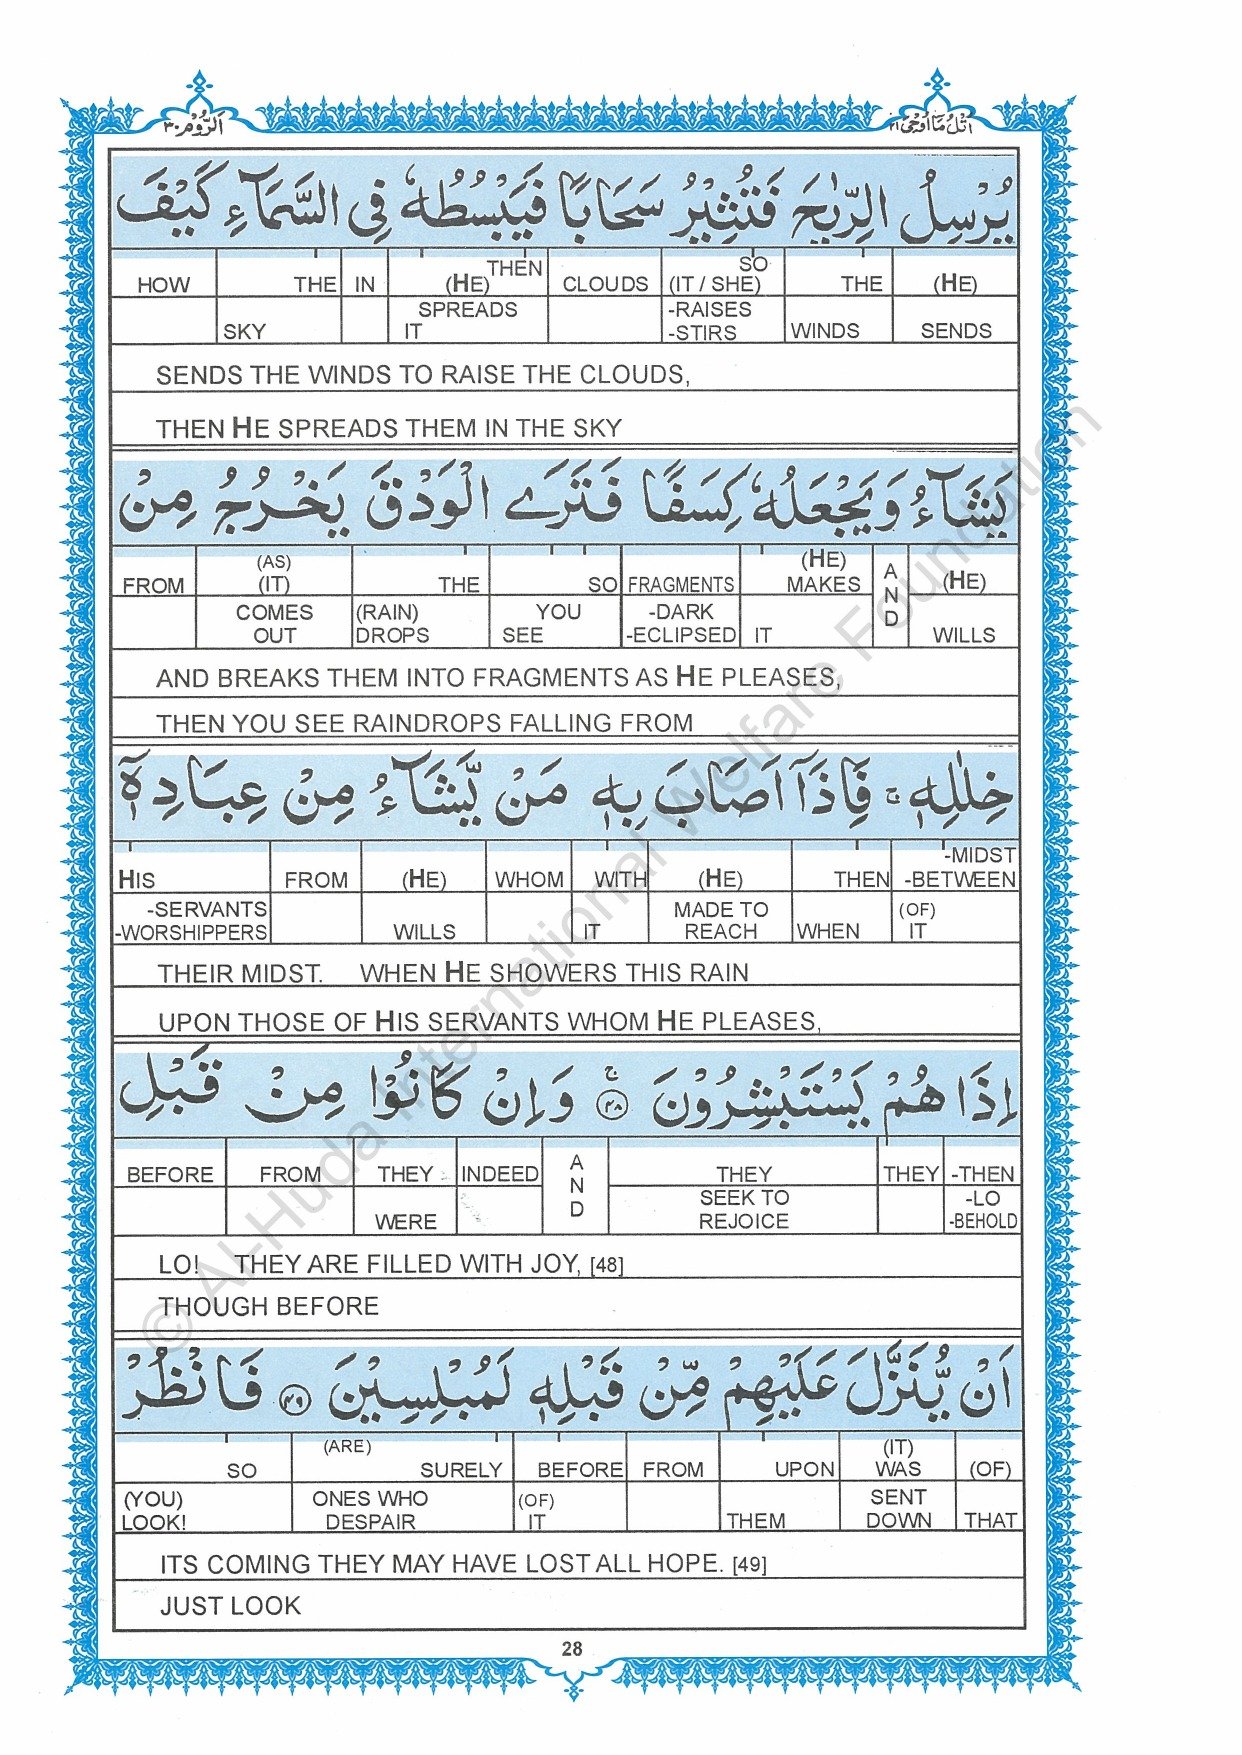 اَلرُّوْم ٣٠
اُتْلُ مَاۤ اُوْحِیَ ٢١
یُرْسِلُ الرِّیٰحَ فَتُثِیْرُ سَحَابًا فَیَبْسُطُهٗ فِی السَّمَآءِ كَیْفَ
HOW THE IN (HE) THEN CLOUDS (IT / SHE) SO THE (HE)
SKY SPREADS IT -RAISES -STIRS WINDS SENDS
SENDS THE WINDS TO RAISE THE CLOUDS,
THEN HE SPREADS THEM IN THE SKY
یَشَآءُ وَیَجْعَلُهٗ كِسَفًا فَتَرَی الْوَدْقَ یَخْرُجُ مِنْ
FROM (AS) (IT) THE SO FRAGMENTS (HE) MAKES AND (HE)
COMES OUT (RAIN) DROPS YOU SEE -DARK -ECLIPSED IT WILLS
AND BREAKS THEM INTO FRAGMENTS AS HE PLEASES,
THEN YOU SEE RAINDROPS FALLING FROM
خِلٰلِهٖ ۚ فَاِذَاۤ اَصَابَ بِهٖ مَنْ یَّشَآءُ مِنْ عِبَادِهٖۤ
HIS FROM (HE) WHOM WITH (HE) THEN -MIDST -BETWEEN
-SERVANTS -WORSHIPPERS WILLS IT MADE TO REACH WHEN (OF) IT
THEIR MIDST. WHEN HE SHOWERS THIS RAIN
UPON THOSE OF HIS SERVANTS WHOM HE PLEASES,
اِذَا هُمْ یَسْتَبْشِرُوْنَ ۚ ﴿٤٨﴾ وَاِنْ كَانُوْا مِنْ قَبْلِ
BEFORE FROM THEY INDEED AND THEY THEY -THEN
WERE SEEK TO REJOICE -LO -BEHOLD
LO! THEY ARE FILLED WITH JOY, [48]
THOUGH BEFORE
اَنْ یُّنَزَّلَ عَلَیْهِمْ مِّنْ قَبْلِهٖ لَمُبْلِسِیْنَ ﴿٤٩﴾ فَانْظُرْ
SO (ARE) SURELY BEFORE FROM UPON (IT) WAS (OF)
(YOU) LOOK! ONES WHO DESPAIR (OF) IT THEM SENT DOWN THAT
ITS COMING THEY MAY HAVE LOST ALL HOPE. [49]
JUST LOOK
28
© Al-Huda International Welfare Foundation